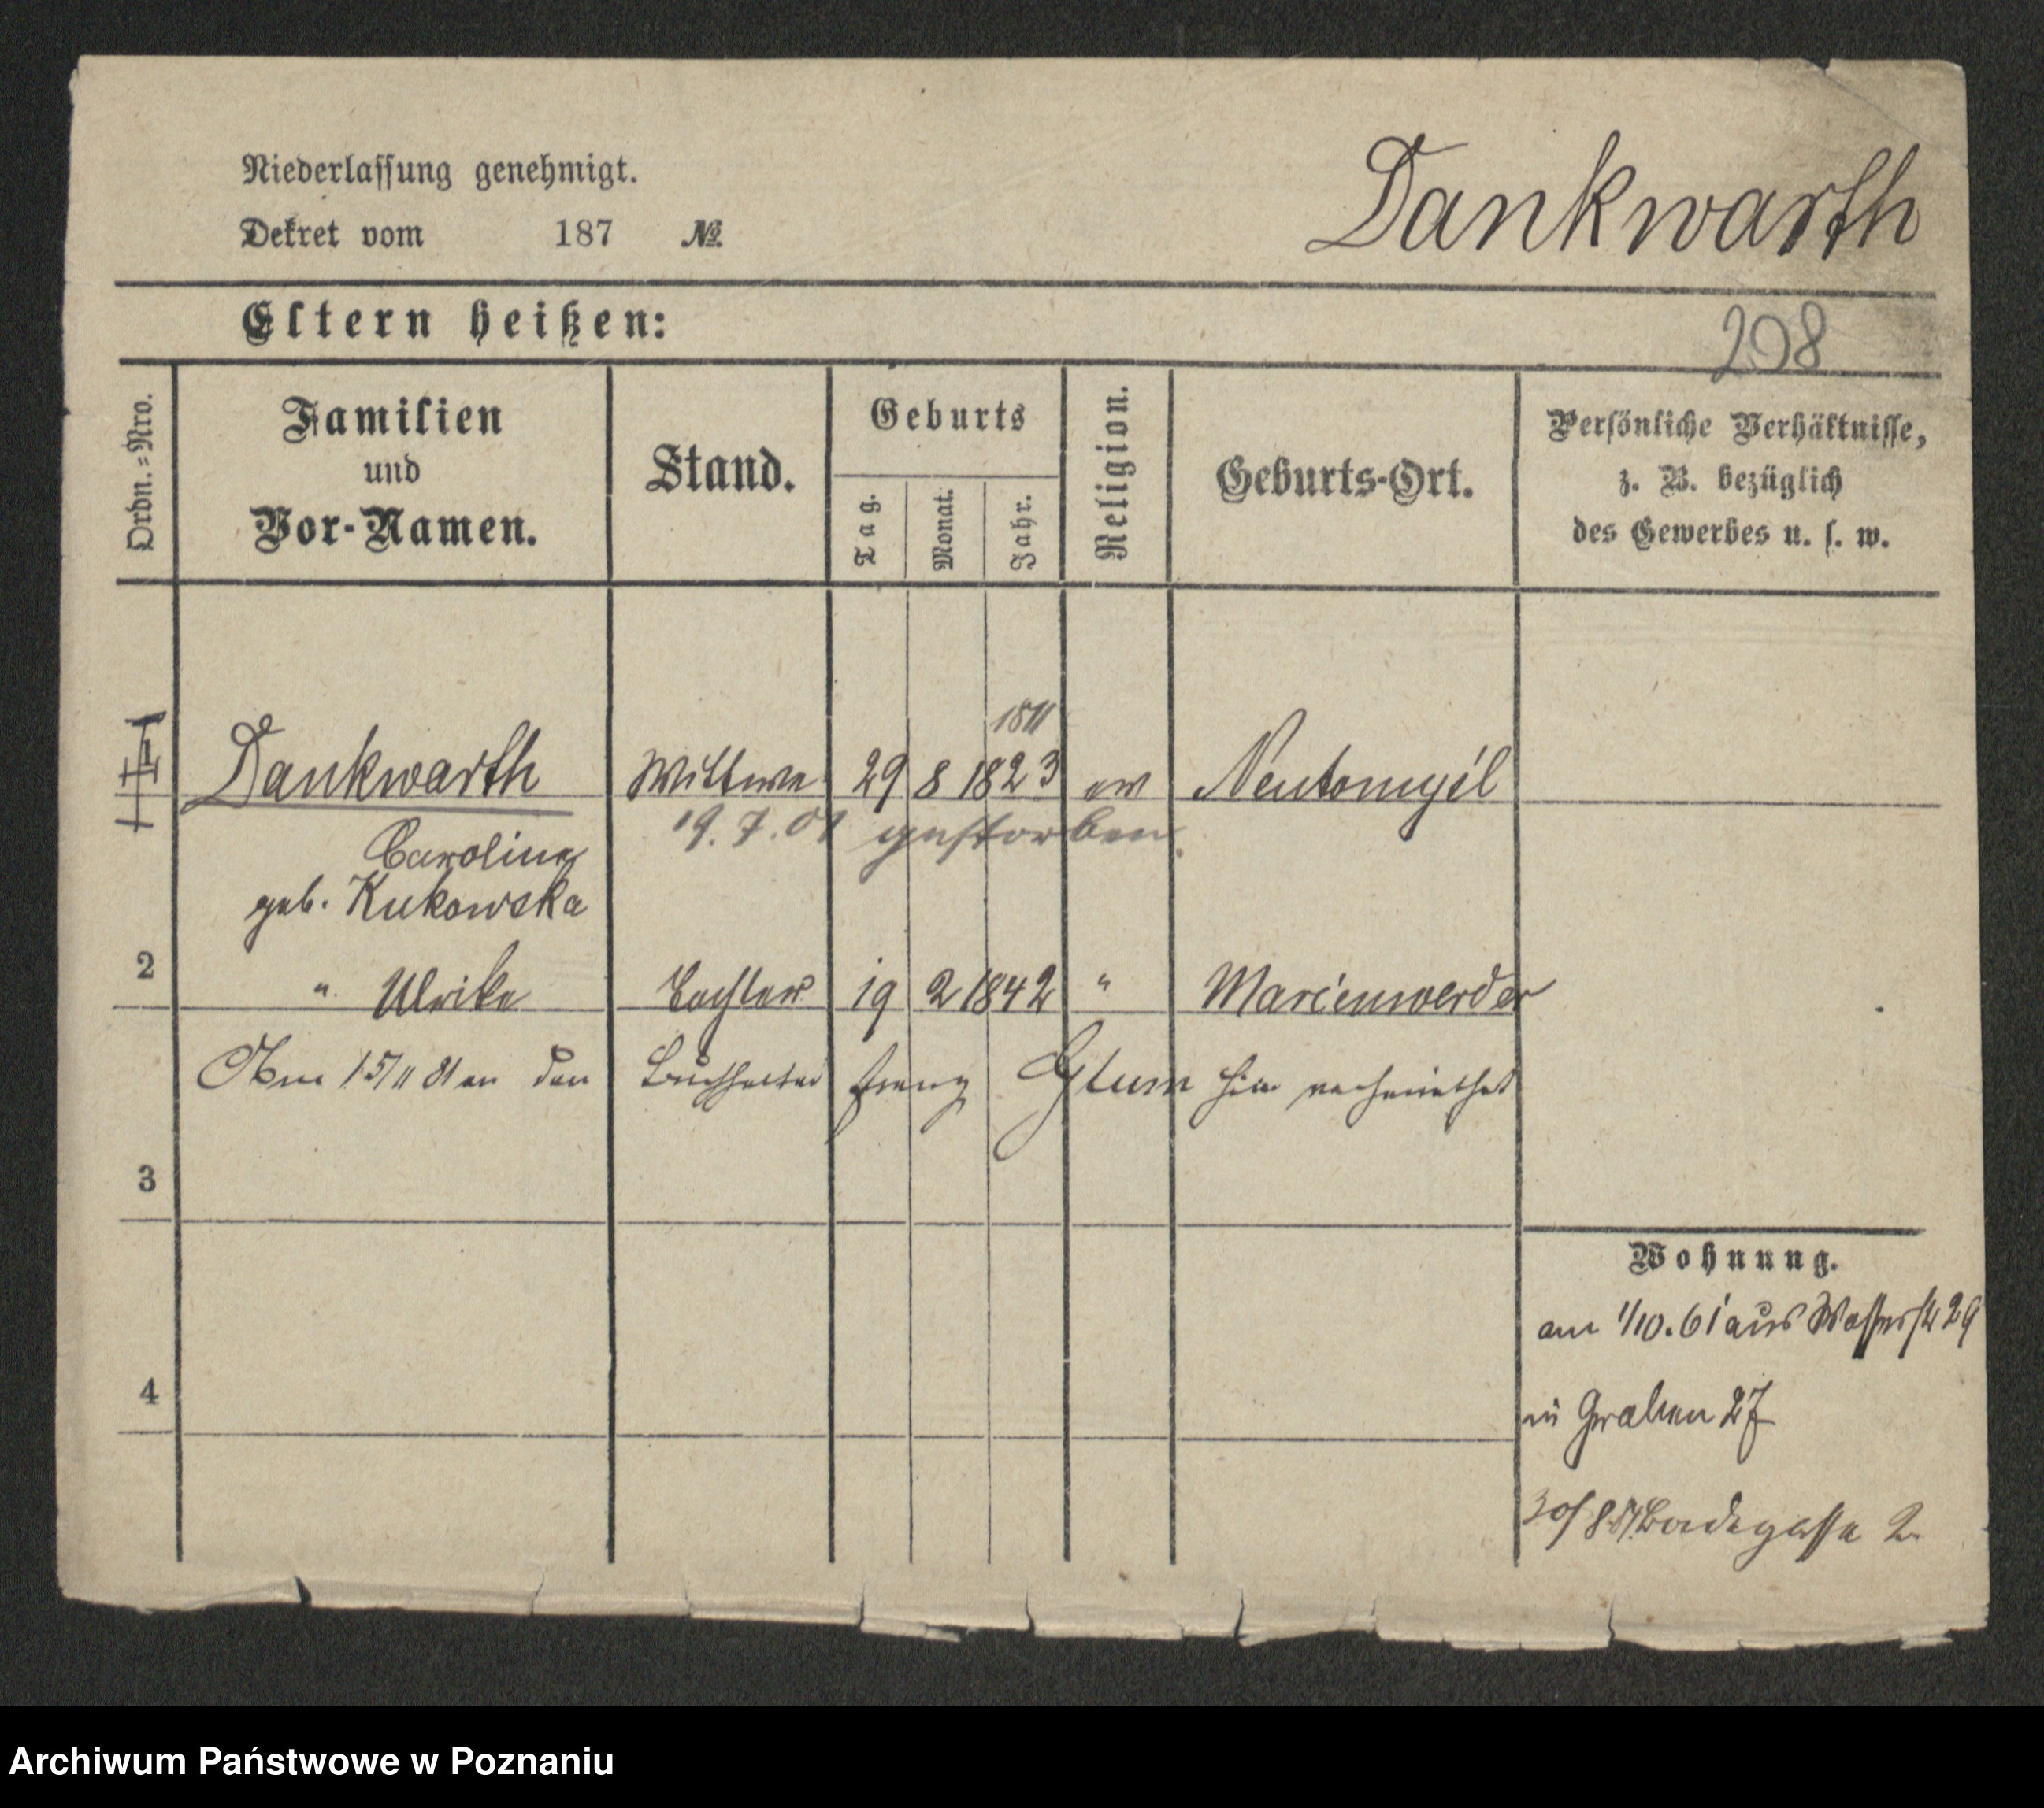 Niederlassung genehmigt.
Dekret vom 187 №
Dankwarth
Eltern heißen:
208
Ordn.=Nro.
Familien
und
Vor-Namen.
Stand.
Geburts
Tag.
Monat.
Jahr.
Religion.
Geburts-Ort.
Persönliche Verhältnisse,
z. B. bezüglich
des Gewerbes u. s. w.
1811
1 Dankwarth Wittwe 29 8 1823 ev Neutomyśl
19.7.01 gestorben.
Caroline
geb. Kukowska
2 " Ulrike Tochter 19 2 1842 " Marienwerder
15/11 81 an den Buchhalter Franz Glum hier verheirathet
3
Wohnung.
am 1/10.61 aus Wasserstr 29
4
in Graben 27
30/8 Badegasse 2
Archiwum Państwowe w Poznaniu